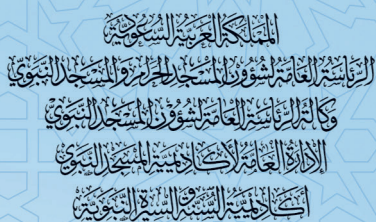 المملكة العربية السعودية
الرئاسة العامة لشؤون المسجد الحرام والمسجد النبوي
وكالة الرئاسة العامة لشؤون المسجد النبوي
الإدارة العامة لأكاديمية المسجد النبوي
أكاديمية السنة والسيرة النبوية